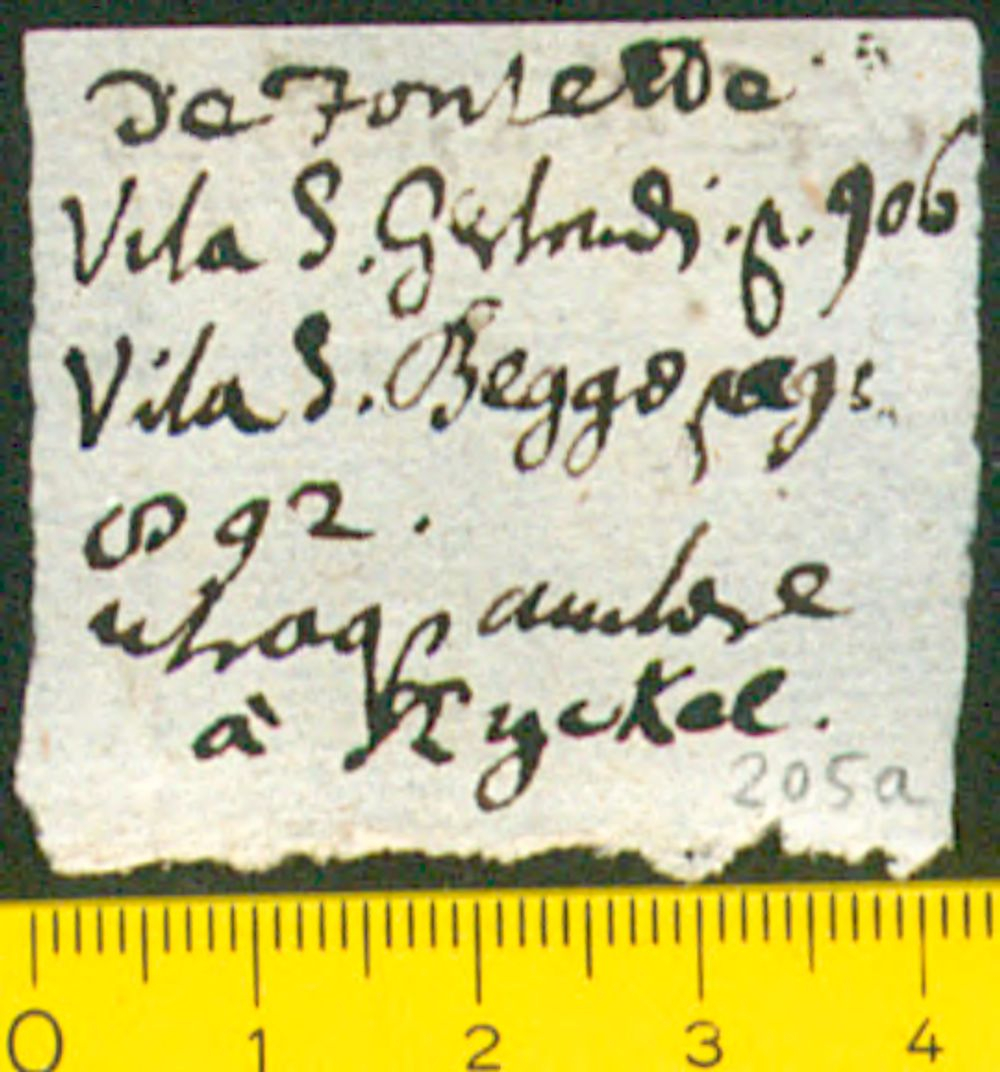 De Fontette
Vita S. Gertrudis. p. 906
Vita S. Beggæ pag:
92.
utraq; autore
à Ryckel.
205a
0 1 2 3 4